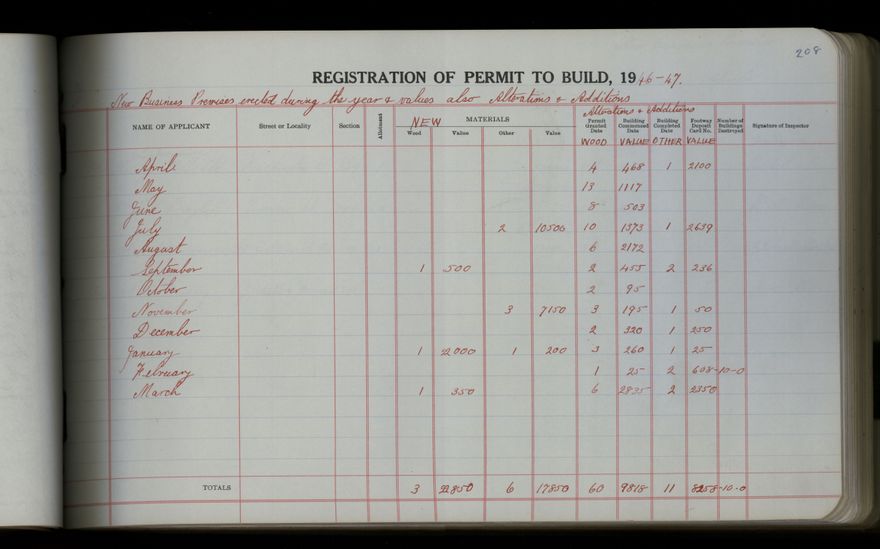 208
REGISTRATION OF PERMIT TO BUILD, 1946-47.
New Business Premises erected during the year & values also Alterations & Additions
Alterations & Additions
NAME OF APPLICANT Street or Locality Section Allotment NEW MATERIALS Permit Granted Date Building Commenced Date Building Completed Date Footway Deposit Card No. Number of Buildings Destroyed Signature of Inspector
Wood Value Other Value WOOD VALUE OTHER VALUE
April 4 468 1 2100
May 13 1117
June 8 503
July 2 10500 10 1373 1 2639
August 6 2172
September 1 500 2 455 2 236
October 2 95
November 3 7150 3 195 1 50
December 2 320 1 250
January 1 22000 1 200 3 260 1 25
February 1 25 2 608-10-0
March 1 350 6 2835 2 2350
TOTALS 3 22850 6 17850 60 9818 11 8258-10-0